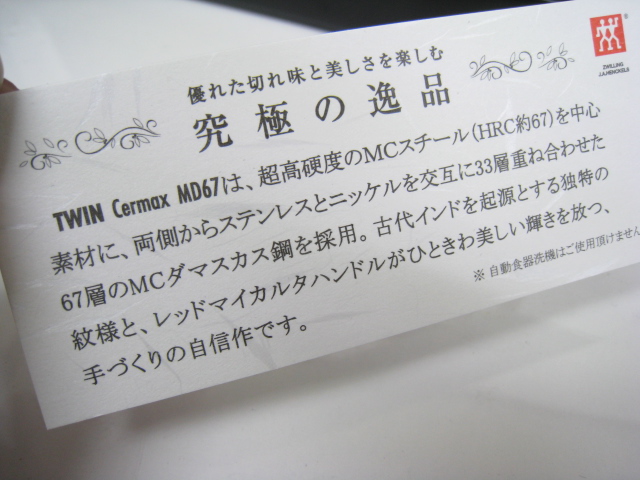 優れた切れ味と美しさを楽しむ
究極の逸品
ZWILLING
J.A.HENCKELS
TWIN Cermax MD67は、超高硬度のMCスチール(HRC約67)を中心
素材に、両側からステンレスとニッケルを交互に33層重ね合わせた
67層のMCダマスカス鋼を採用。古代インドを起源とする独特の
紋様と、レッドマイカルタハンドルがひときわ美しい輝きを放つ、
手づくりの自信作です。
※自動食器洗機はご使用頂けません